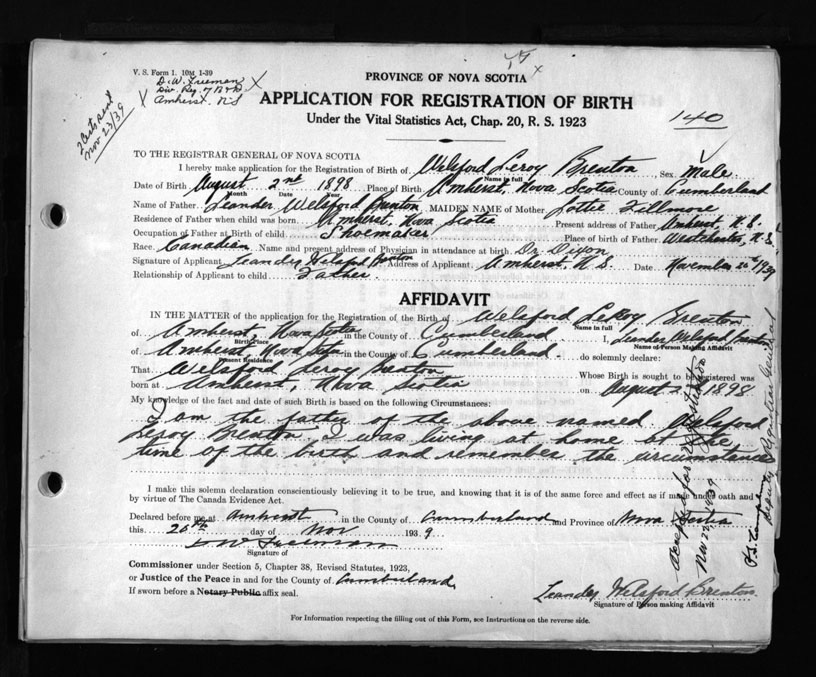 V. S. Form 1. 10M 1-39
D. W. Freeman
Div. Reg. of B & D
Amherst. N S
2 Certs sent
Nov 23/39
PROVINCE OF NOVA SCOTIA
APPLICATION FOR REGISTRATION OF BIRTH
Under the Vital Statistics Act, Chap. 20, R. S. 1923
140
TO THE REGISTRAR GENERAL OF NOVA SCOTIA
I hereby make application for Registration of Birth of Welsford Leroy Brenton, Sex Male
Name in full
Date of Birth August 2nd 1898 Place of Birth Amherst, Nova Scotia County of Cumberland
Month Date Year
Name of Father Leander Welsford Brenton MAIDEN NAME of Mother Lottie Fillmore
Residence of Father when child was born Amherst, Nova Scotia Present address of Father Amherst, N. S.
Occupation of Father at Birth of child Shoemaker Place of birth of Father Westchester, N. S.
Race Canadian Name and present address of Physician in attendance at birth Dr. Dixon
Signature of Applicant Leander Welsford Brenton Address of Applicant Amherst, N. S. Date November 20th 1939
Relationship of Applicant to child Father.
AFFIDAVIT
IN THE MATTER of the application for Registration of the Birth of Welsford LeRoy Brenton
Name in full
of Amherst, Nova Scotia in the County of Cumberland I, Leander Welsford Brenton
Birth Place Name of Person Making Affidavit
of Amherst, Nova Scotia in the County of Cumberland. do solemnly declare:
Present Residence
That Welsford Leroy Brenton Whose Birth is sought to be registered was
born at Amherst, Nova Scotia on August 2 1898
My knowledge of the fact and date of such Birth is based on the following Circumstances:
I am the father of the above named Welsford
Leroy Brenton. I was living at home at the
time of the birth and remember the circumstance
I make this solemn declaration conscientiously believing it to be true, and knowing that it is of the same force and effect as if made under oath and
by virtue of The Canada Evidence Act.
Declared before me at Amherst in the County of Cumberland and Province of Nova Scotia
this 20th day of Nov 1939
D W Freeman
Signature of
Commissioner under Section 5, Chapter 38, Revised Statutes, 1923,
or Justice of the Peace in and for the County of Cumberland,
If sworn before a Notary Public affix seal.
Leander Welsford Brenton.
Signature of Person making Affidavit
For Information respecting the filling out of this Form, see Instructions on the reverse side.
Accepted for Registration
Nov 22, 1939
Deputy Registrar General